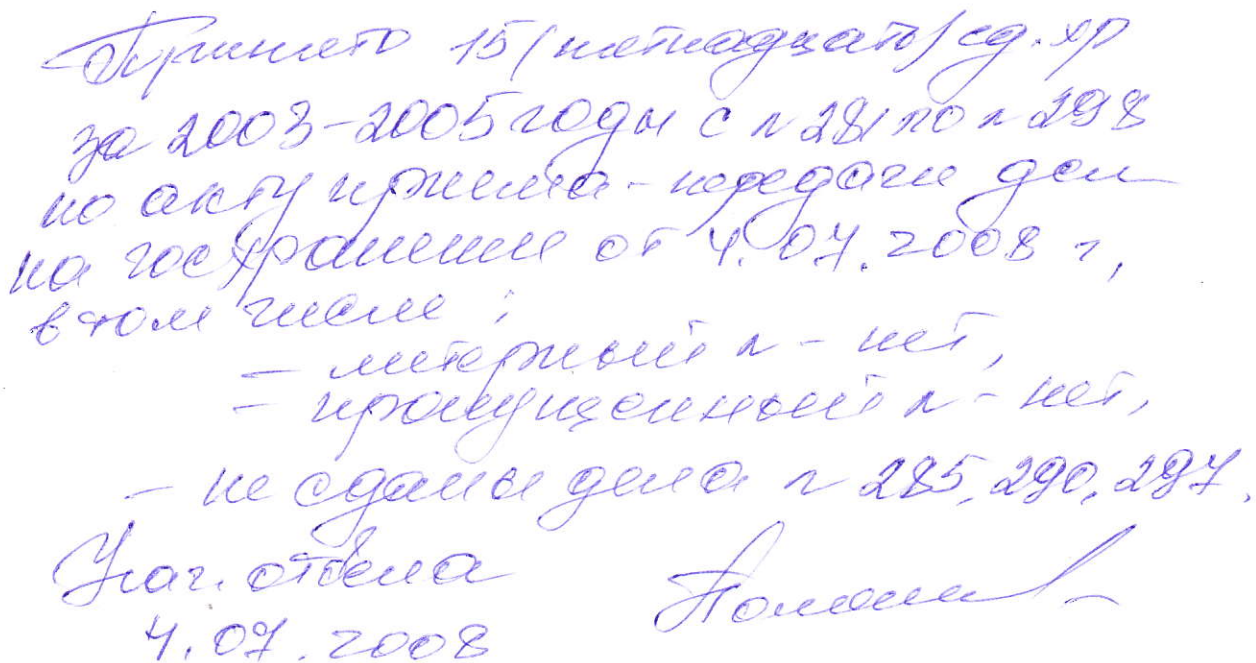 Принято 15 (пятнадцать) ед. хр
за 2003-2005 годы с № 281 по № 298
по акту приема-передачи дел
на госхранение от 4.07.2008 г,
в том числе :
- литерный № - нет,
- пропущенный № - нет,
- не сданы дела № 285, 290, 297.
Нач. отдела
4.07.2008